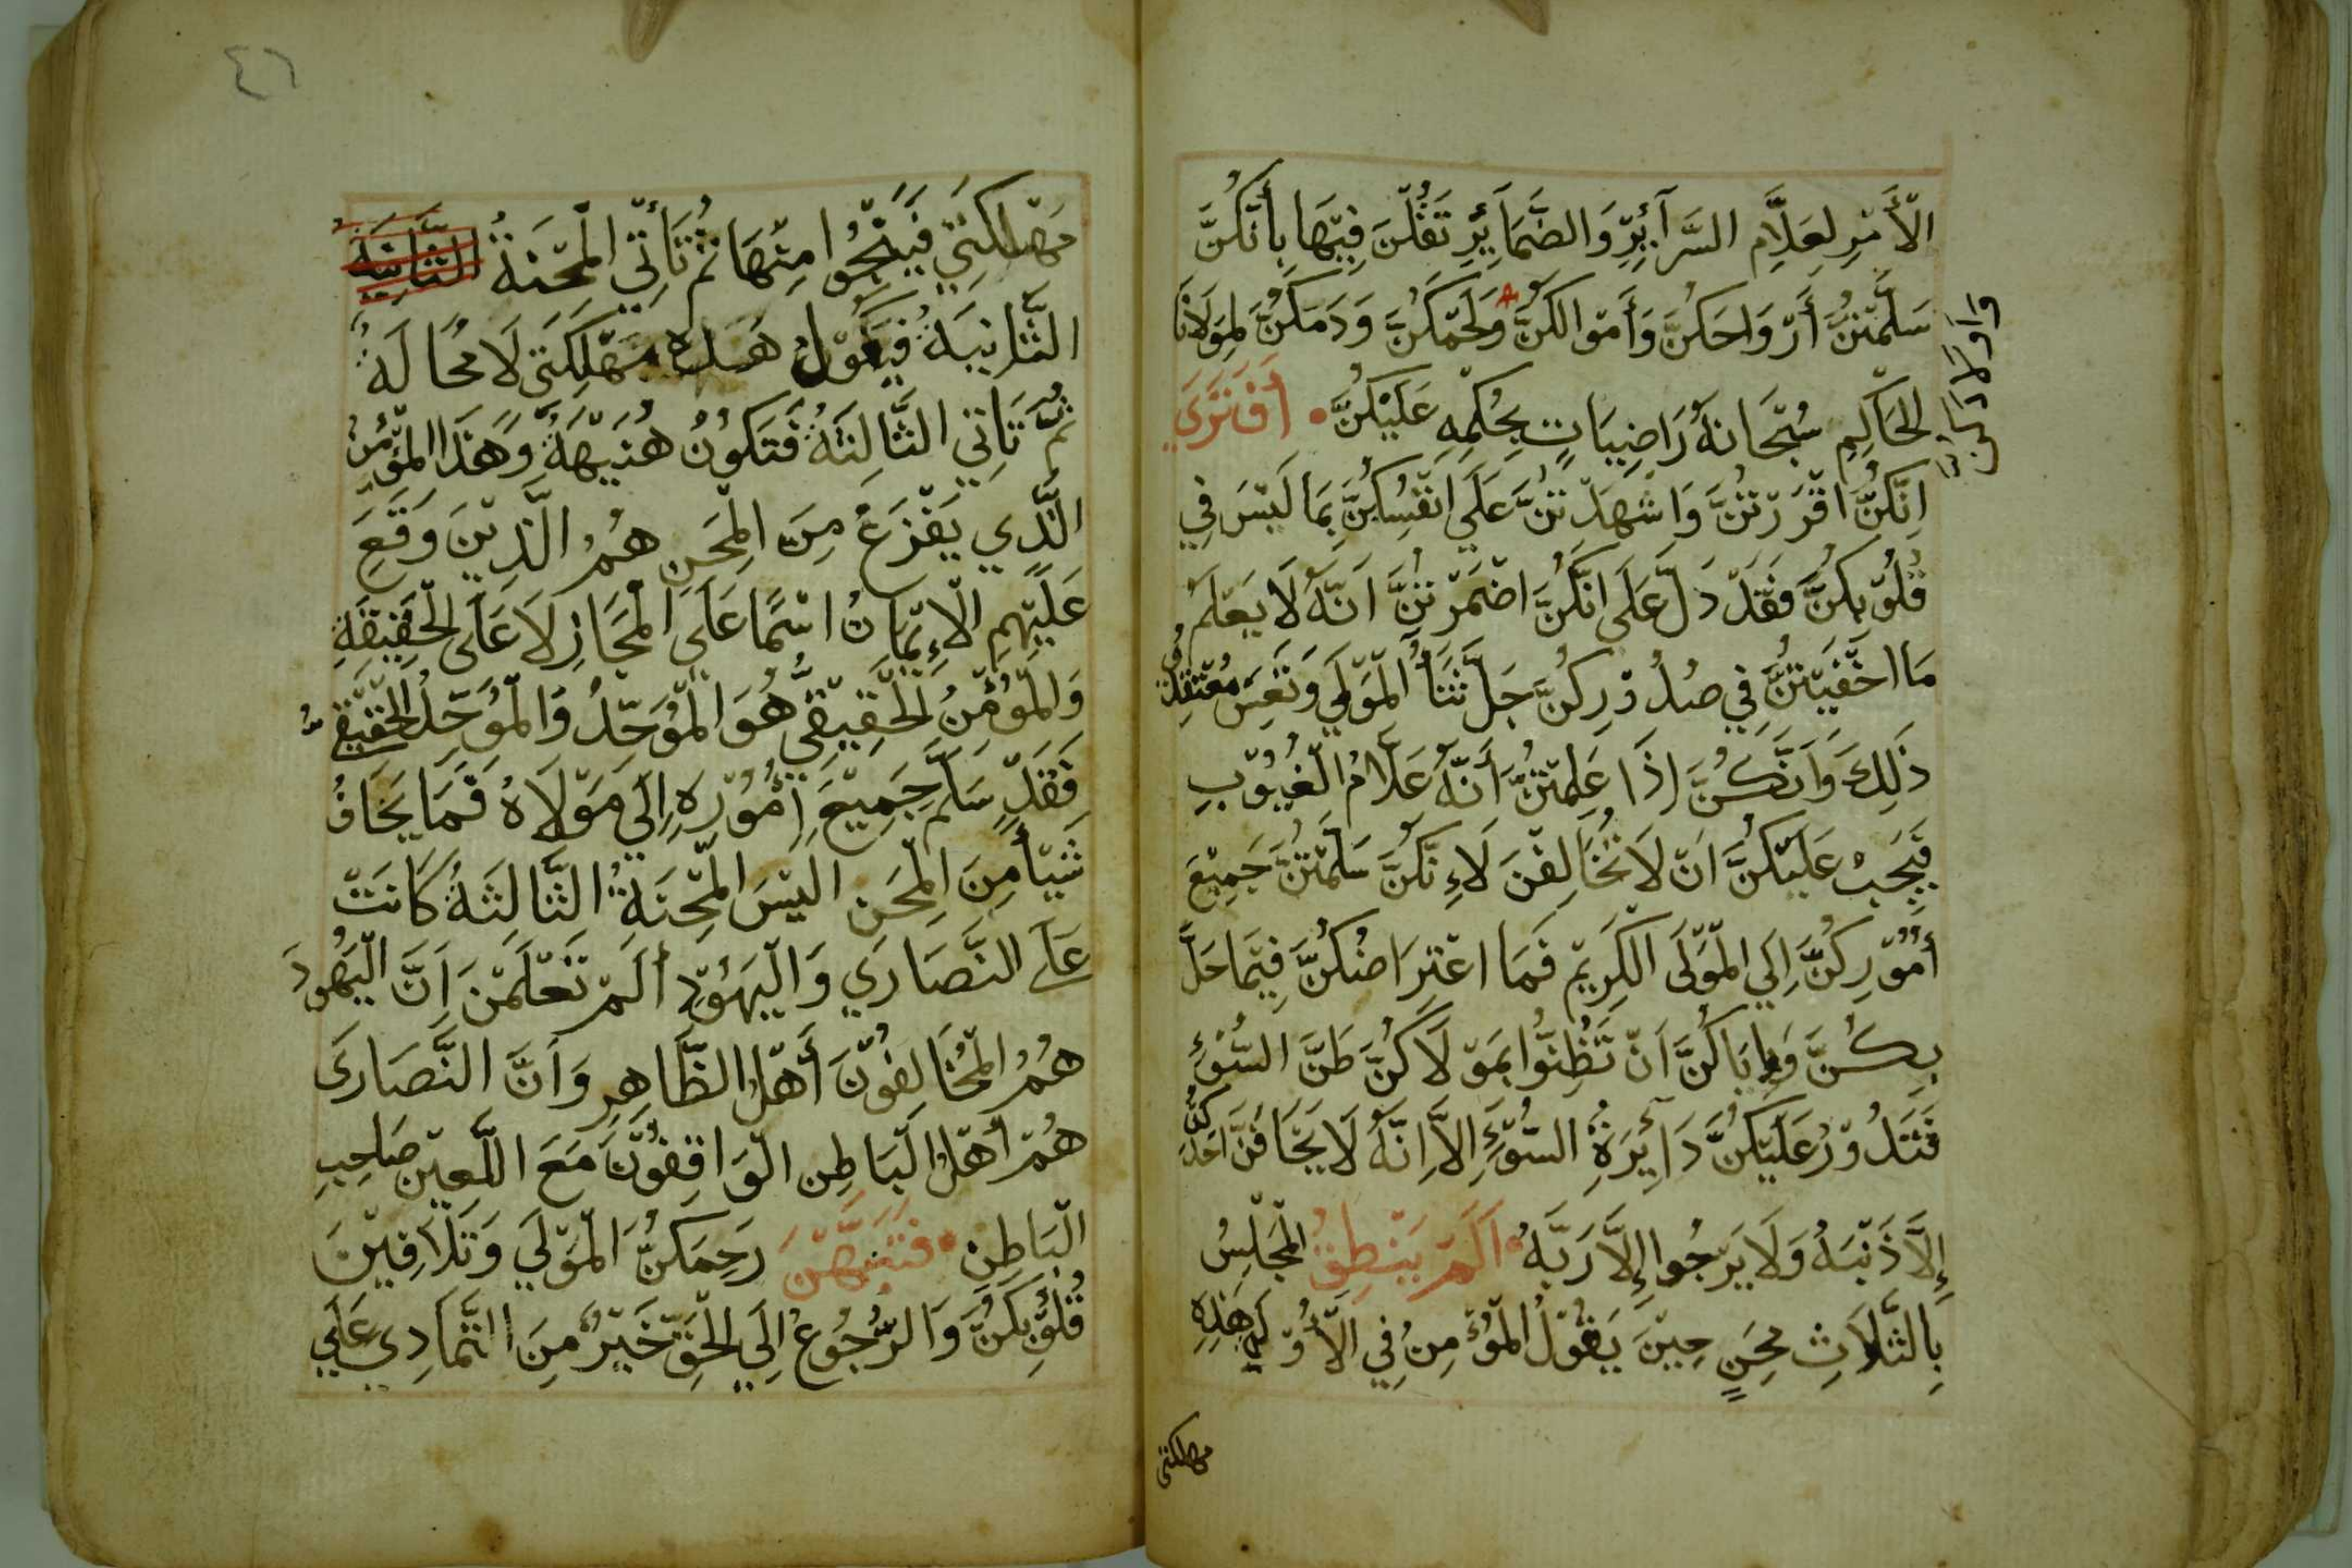 الْأَمْرِ لِعَلَّامِ السَّرَآئِرِ وَالضَّمَائِرِ تَقُلْنَ فِيْهَا بِأَنَّكُنَّ
سَلَّمْتُنَّ أَرْوَاحَكُنَّ وَأَمْوَالَكُنَّ وَلَحْمَكُنَّ وَدَمَكُنَّ لِمَوْلَانَا
واولادكن
الْحَاكِمِ سُبْحَانَهُ رَاضِيَاتٍ بِحُكْمِهِ عَلَيْكُنَّ أَفَتَرَي
اِنَّكُنَّ اقْرَرْتُنَّ وَاشْهَدْتُنَّ عَلَي انْفُسِكُنَّ بِمَا لَيْسَ فِي
قُلُوْبِكُنَّ فَقَدْ دَلَّ عَلَى انَّكُنَّ اضْمَرْتُنَّ اَنَّهُ لَا يَعْلَمُ
مَا اخْفَيْتُنَّ فِي صُدُوْرِكُنَّ جَلَّ ثَنَأُ الْمَوْلَي وَتَعِسَ مُعْتَقِدُ
ذَلِكَ وَاَنَّكُنَّ اِذَا عَلِمْتُنَّ أَنَّهُ عَلَّامُ الْغُيُوْبِ
فَيَجِبْ عَلَيْكُنَّ اَنْ لَا تُخَالِفْنَ لَاءِنَّكُنَّ سَلَّمْتُنَّ جَمِيْعَ
أُمُوْرِكُنَّ اِلَي الْمَوْلَى الْكَرِيْمِ فَمَا اعْتِرَاضُكُنَّ فِيْمَا حَلَّ
بِكُنَّ وَاِيَاكُنَّ اَنْ تَظُنُّوا بِمَوْلَاكُنَّ ظَنَّ السُّوْءِ
فَتَدُوْرُ عَلَيْكُنَّ دَآئِرَةُ السُّوْءِ اِلَّا اِنَّهُ لَا يَخَافَنَّ احَدُكُنَّ
إِلَّا ذَنْبَهُ وَلَا يَرْجُوا إِلَّا رَبَّهُ اَلَمْ يَنْطِقُ الْمَجْلِسُ
بِالثَّلَاثِ مِحَنٍ حِيْنَ يَقُوْلُ الْمُؤْمِنُ فِي الْأُوْلَى هَذِهِ
مهلكتي
٤٦
مَهْلَكَتِي فَيَنْجُوا مِنْهَا ثُمَّ تَأْتِي الْمِحْنَةُ الثَّانِيَةُ
الثَّانِيَةُ فَيَقُوْلُ هَذِهِ مَهْلَكَتِى لَا مُحَالَةُ
ثُمَّ تَاتِي الثَّالِثَةُ فَتَكُوْنُ هُنَيْهَةً وَهَذَا الْمُؤْمِنُ
الَّذِي يَفْزَعُ مِنَ الْمِحَنِ هُمُ الَّذِيْنَ وَقَعَ
عَلَيْهِمِ الْاِءِيْمَانُ اسْمًا عَلَي الْمَجَازِ لَا عَلَى الْحَقِيْقَةِ
وَالْمُوْمِنُ الْحَقِيْقِيُّ هُوَ الْمُوَحِّدُ وَالْمُوَحِّدُ الْحَقِيْقِيُّ
فَقَدْ سَلَّمَ جَمِيْعَ أُمُوْرِهِ اِلَى مَوْلَاهُ فَمَا يَخَافُ
شَيْأً مِنَ الْمِحَنِ اليْسَ الْمِحْنَةُ الثَّالِثَةُ كَانَتْ
عَلَى النَّصَارَي وَالْيَهُوْدِ أَلَمْ تَعْلَمْنَ اَنَّ الْيَهُودَ
هُمُ الْمُخَالِفُوْنَ أَهْلُ الظَّاهِرِ وَاَنَّ النَّصَارَى
هُمْ أَهْلُ الْبَاطِنِ الْوَاقِفُوْنَ مَعَ اللَّعِيْنِ صَاحِبِ
الْبَاطِنِ فَتَنَبَّهْنَ رَحِمَكُنَّ الْمَوْلَي وَتَلَافِيْنَ
قُلُوْبَكُنَّ وَالرُّجُوْعُ اِلَي الْحَقِّ خَيْرٌ مِنَ التَّمَادِي عَلَي